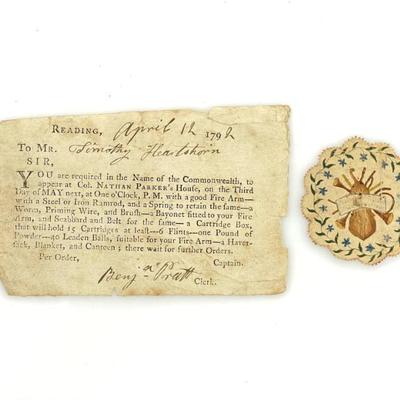 READING, April 12 1792
To Mr. Timothy Heartshorn
SIR,
YOU are required in the Name of the Commonwealth, to
appear at Col. NATHAN PARKER's House, on the Third
Day of MAY next, at One o'Clock, P. M. with a good Fire Arm—
with a Steel or Iron Ramrod, and a Spring to retain the same—a
Worm, Priming Wire, and Brush—a Bayonet fitted to your Fire
Arm, and Scabbard and Belt for the same—a Cartridge Box,
that will hold 15 Cartridges at least—6 Flints—one Pound of
Powder—40 Leaden Balls, suitable for your Fire Arm—a Haver-
sack, Blanket, and Canteen; there wait for further Orders.
Per Order, Captain.
Benj.a Pratt
Clerk.